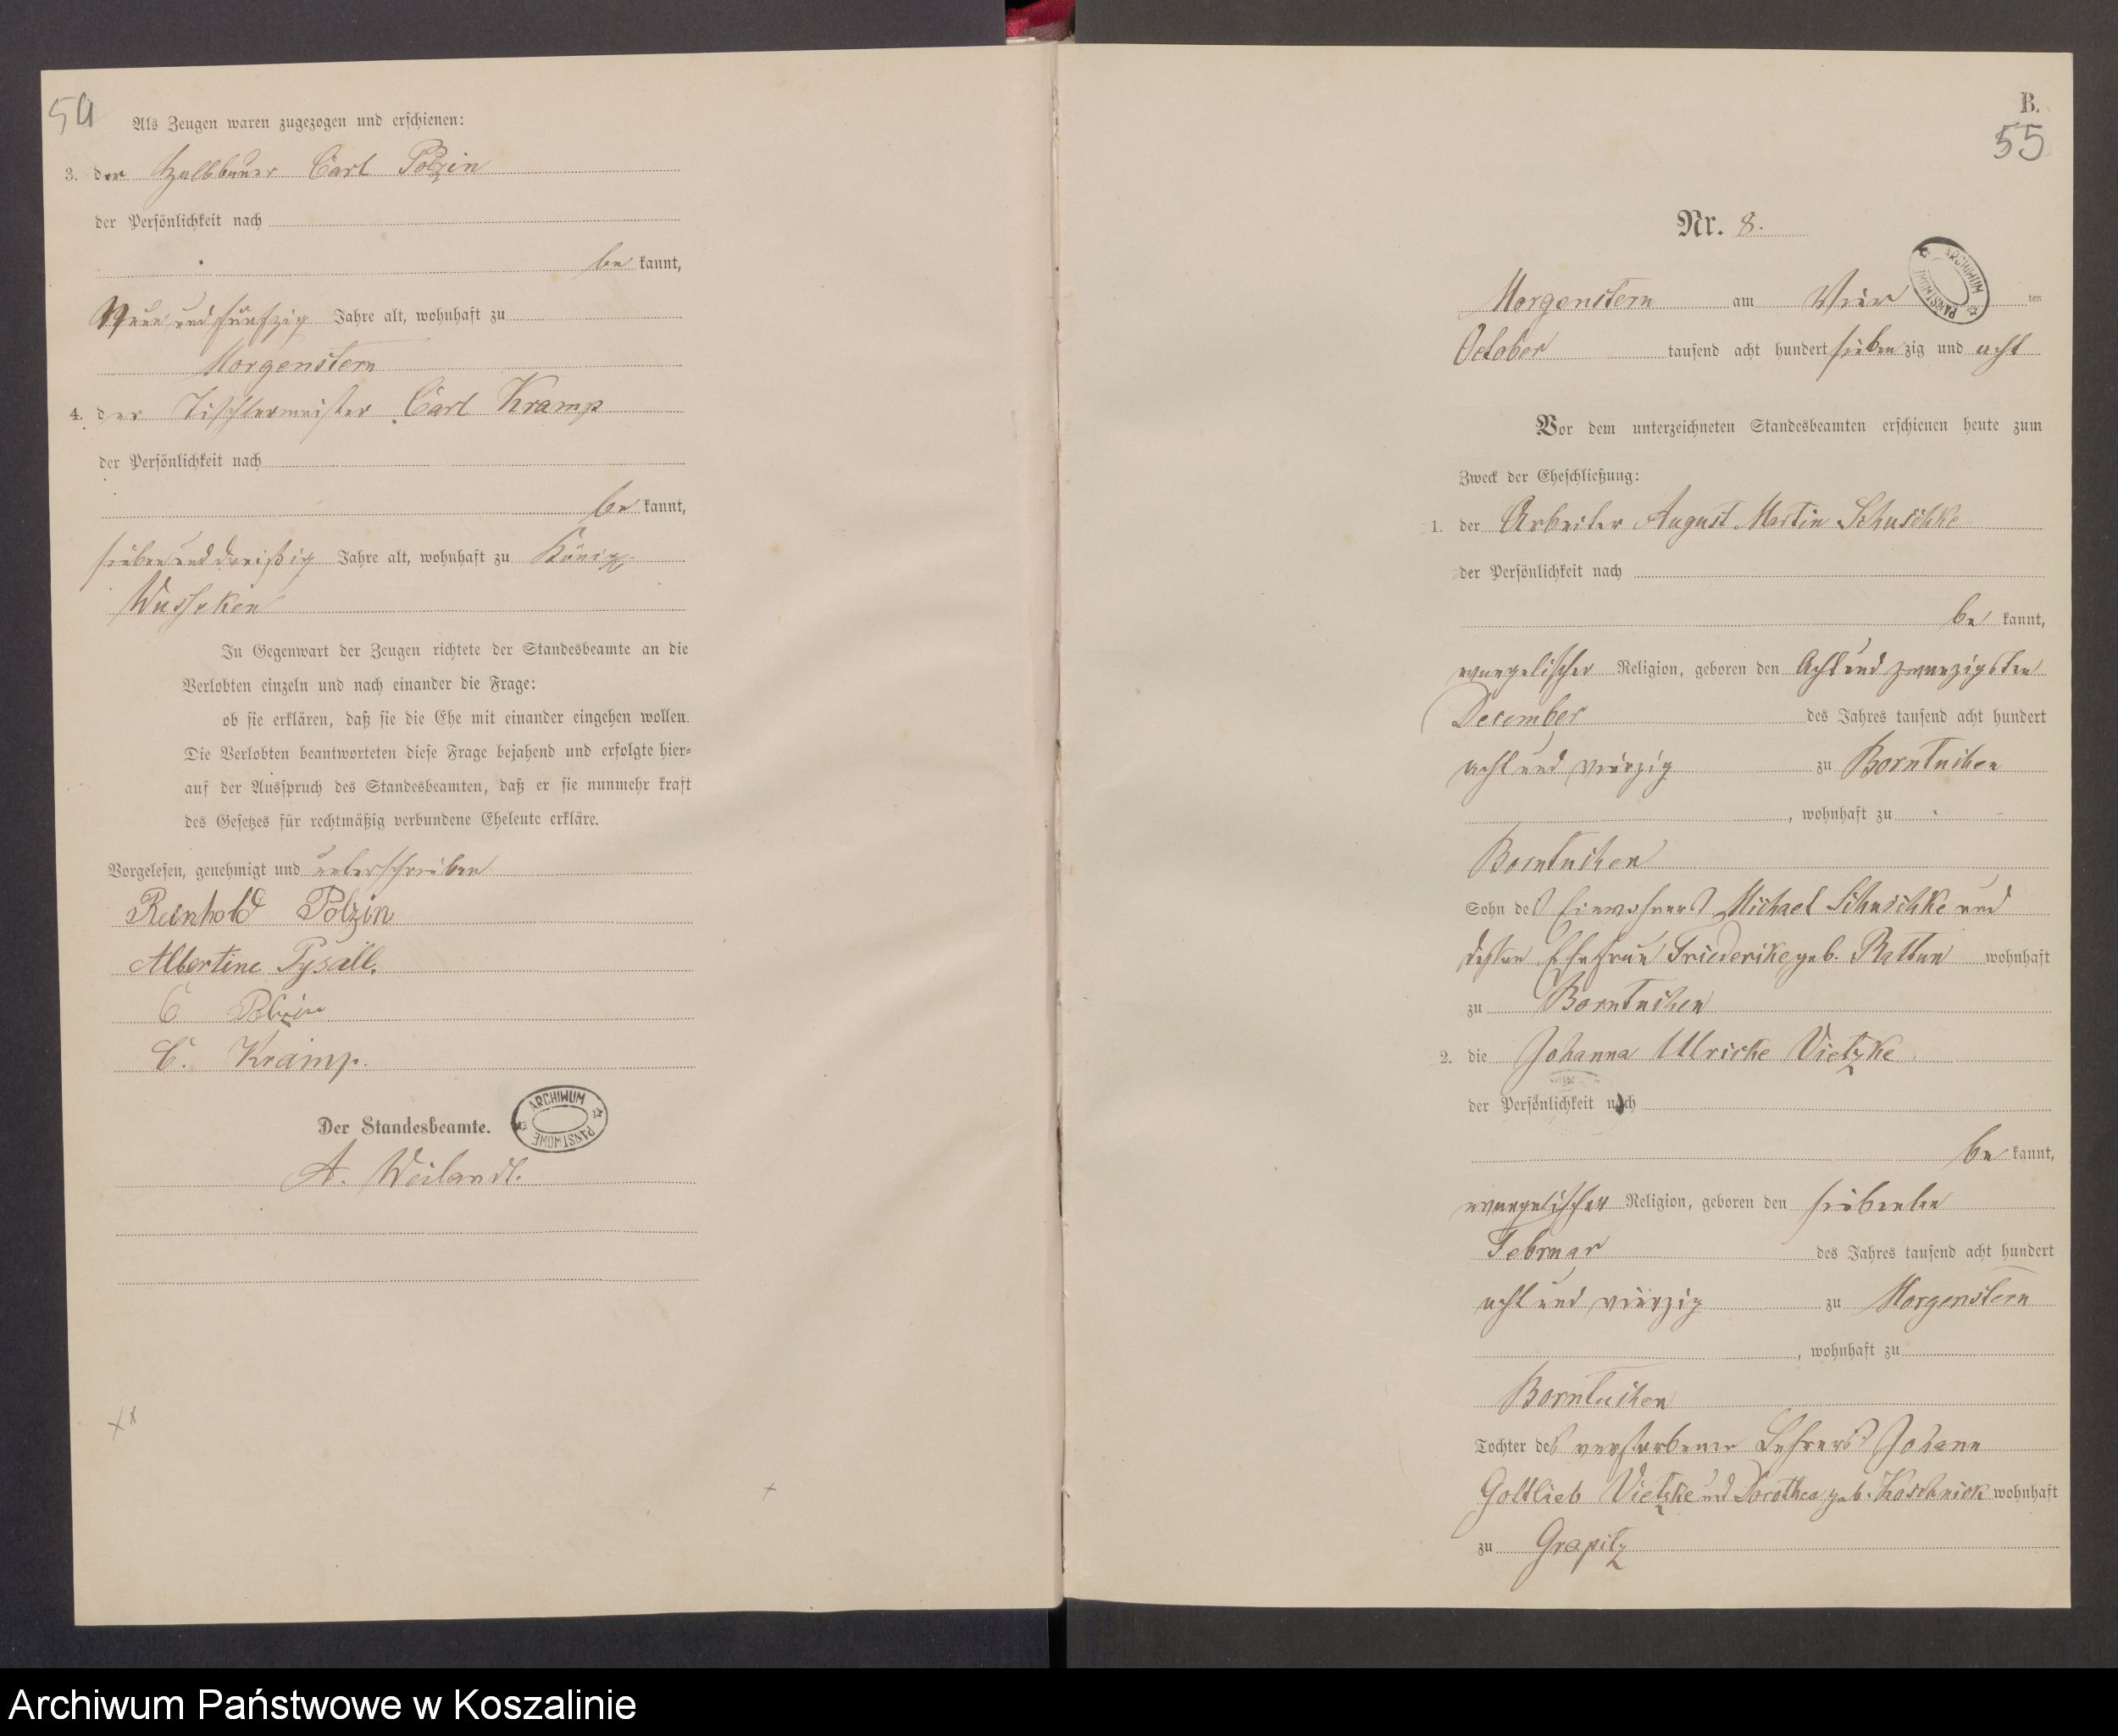 54
Als Zeugen waren zugezogen und erschienen:
3. der Halbbauer Carl Polzin
der Persönlichkeit nach
be kannt,
Neun und fünfzig Jahre alt, wohnhaft zu
Morgenstern
4. der Tischlermeister Carl Kramp
der Persönlichkeit nach
be kannt,
sieben und dreißig Jahre alt, wohnhaft zu König
Wusseken
In Gegenwart der Zeugen richtete der Standesbeamte an die
Verlobten einzeln und nach einander die Frage:
ob sie erklären, daß sie die Ehe mit einander eingehen wollen.
Die Verlobten beantworteten diese Frage bejahend und erfolgte hier-
auf der Ausspruch des Standesbeamten, daß er sie nunmehr kraft
des Gesetzes für rechtmäßig verbundene Eheleute erkläre.
Vorgelesen, genehmigt und unterschrieben
Reinhold Polzin
Albertine Pysall.
C Polzin
C. Kramp.
Der Standesbeamte.
ARCHIWUM PAŃSTWOWE
A. Weilandt.
B.
55
Nr. 8.
ARCHIWUM PAŃSTWOWE
Morgenstern am Vier ten
October tausend acht hundert sieben zig und acht
Vor dem unterzeichneten Standesbeamten erschienen heute zum
Zweck der Eheschließung:
1. der Arbeiter August Martin Schuschke
der Persönlichkeit nach
be kannt,
evangelischer Religion, geboren den Acht und zwanzigsten
December des Jahres tausend acht hundert
acht und vierzig zu Borntuchen
, wohnhaft zu
Borntuchen
Sohn des Einwohners Michael Schuschke und
dessen Ehefrau Friederike geb. Rattun wohnhaft
zu Borntuchen
2. die Johanna Ulricke Vietzke
der Persönlichkeit nach
be kannt,
evangelischer Religion, geboren den siebenten
Februar des Jahres tausend acht hundert
acht und vierzig zu Morgenstern
, wohnhaft zu
Borntuchen
Tochter des verstorbenen Lehrers Johann
Gottlieb Vietzke und Dorothea geb. Koschnick wohnhaft
zu Grapitz
Archiwum Państwowe w Koszalinie